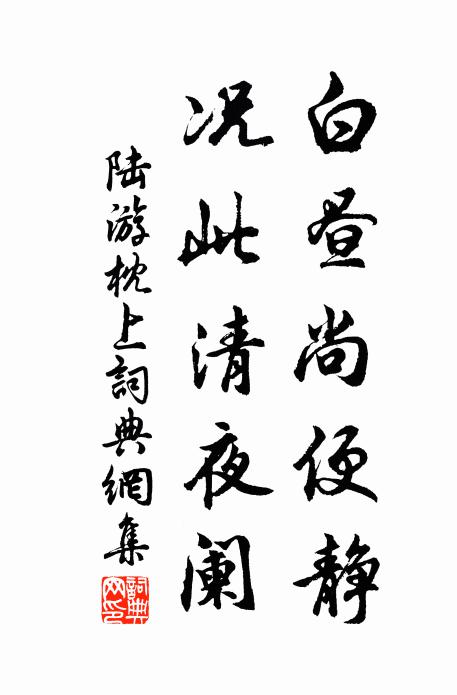 白昼尚便静
况此清夜阑
陆游枕上詞典網集
詞典网印